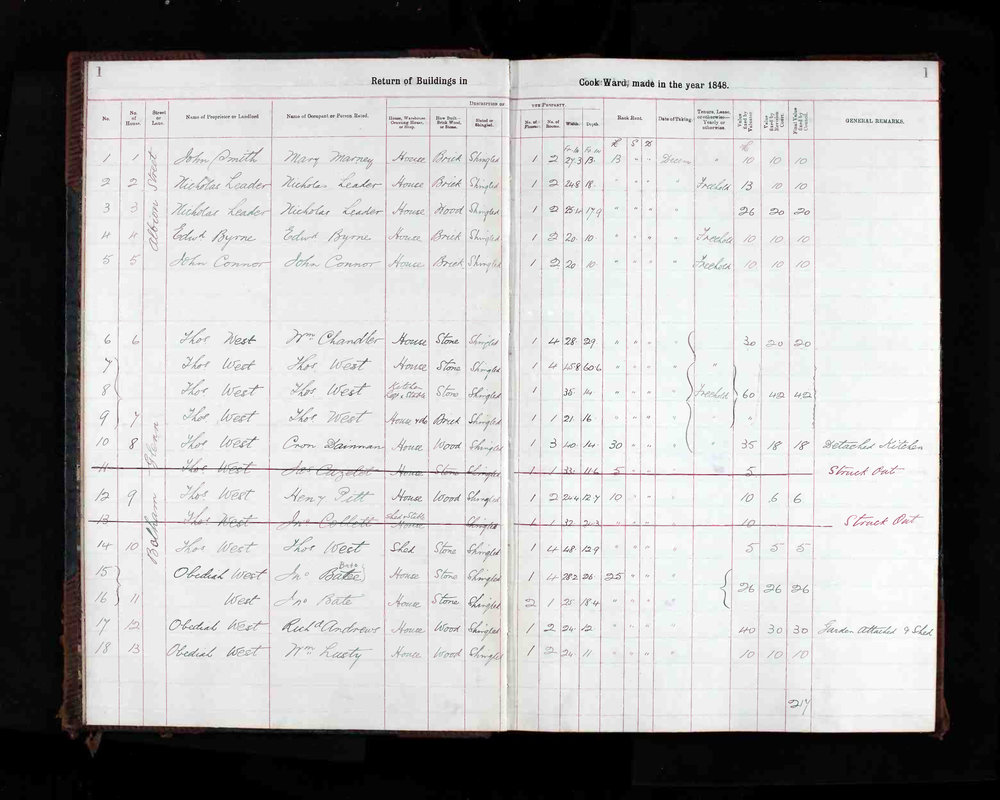 1
1
Return of Buildings in Cook Ward, made in the year 1848.
Description of the Property.
No. No. of House. Street or Lane. Name of Proprietor or Landlord Name of Occupant or Person Rated. House, Warehouse How Built— Brick, Wood, or Stone. Slated or Shingled. No. of Floors. No. of Rooms. Width. Depth. Rack Rent. Date of Taking. Tenure, Lease, or otherwise— Yearly or otherwise. GENERAL REMARKS.
£ S D
Albion Street
1 1 John Smith Mary Marney House Brick Shingled 1 2 27.3 13 13 " " Decem " 10 10 10
2 2 Nicholas Leader Nicholas Leader House Brick Shingled 1 2 24.8 18 " " " " Freehold 13 10 10
3 3 Nicholas Leader Nicholas Leader House Wood Shingled 1 2 17.9 " " " " 26 20 20
4 4 Edwd Byrne Edwd Byrne House Brick Shingled 1 2 20 10 " " " " Freehold 10 10 10
5 5 John Connor John Connor House Brick Shingled 1 2 20 10 " " " " Freehold 10 10 10
6 6 Thos West Wm Chandler House Stone Shingled 1 4 28 29 " " " " 30 20 20
7 Thos West Thos West House Stone Shingled 1 4 " " " " "
8 Thos West Thos West Kitchen Stone Shingled 1 35 14 " " " " Freehold 60 42 42
9 7 Thos West Thos West House Brick Shingled 1 1 21 16 " " " " " "
10 8 Thos West Cron Dainman House Wood Shingled 1 3 40 14 30 " " " " 35 18 18 Detached Kitchen
11 Thos West House Stone Shingled 1 1 33 11.6 5 " " 5 Struck Out
12 9 Thos West Heny Pitt House Wood Shingled 1 2 24.4 12.7 10 " " 10 6 6
13 Thos West Jno Collett House Shingled 1 1 32 " " " 10 Struck Out
14 10 Thos West Thos West Shed Stone Shingled 1 4 48 12.9 " " " " 5 5 5
Bate
15 Obediah West Jno Bates House Stone Shingled 1 4 28.2 26 25 " " 26 26 26
16 11 West Jno Bate House Stone Shingled 2 1 25 18.4 " " "
17 12 Obediah West Richd Andrews House Wood Shingled 1 2 24 12 " " " " 40 30 30 Garden Attached & Shed
18 13 Obediah West Wm Lusty House Wood Shingled 1 2 24 11 " " " " 10 10 10
217